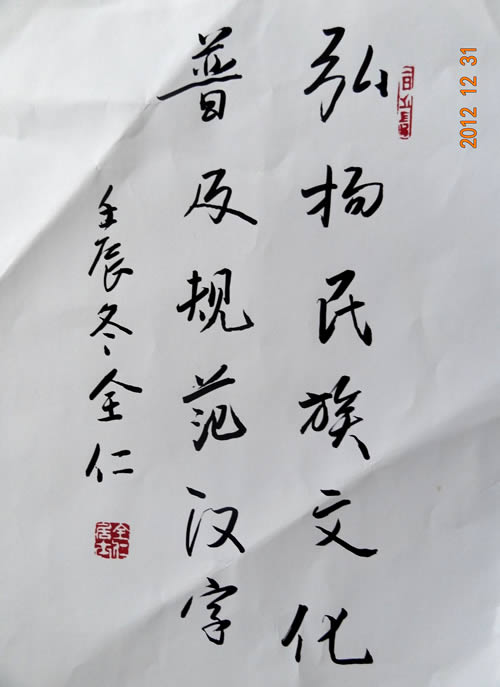 弘扬民族文化
普及规范汉字
壬辰冬全仁
全仁居士
2012 12 31